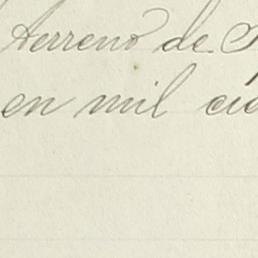 terreno de
en mil